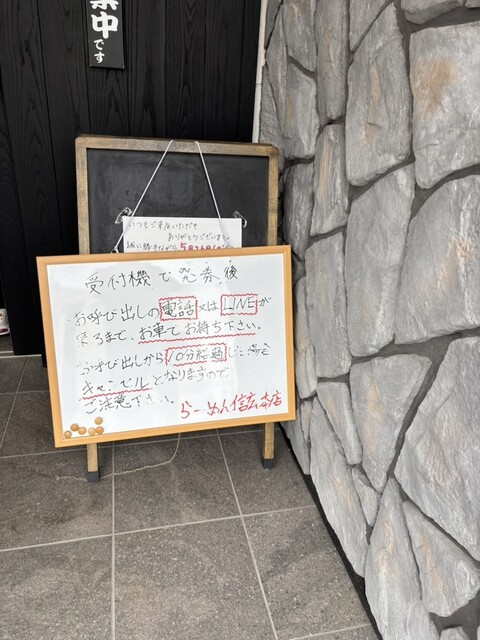 集中
です
いつもご来店いただき
ありがとうございます。
誠に勝手ながら5月26日(
受付機で発券後
お呼び出しの電話又はLINEが
来るまで、お車でお待ち下さい。
お呼び出しから10分経過した場合
キャンセルとなりますので
ご注意下さい。
らーめん信玄本店